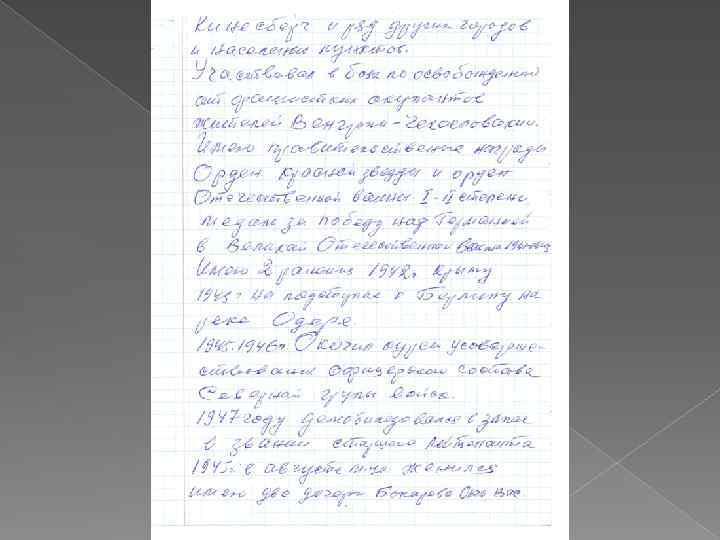 Кинесберг и ряд других городов
и населенн пунктов.
Участвовал в боях по освобождений
от фашистких окупантов
жителей Венгрии-Чехословакии.
Имею правительственые награды
Орден красной звезды и орден
Отечественной войны I-II степени,
медаль за победу над Германией
в Великой Отечественной
Имею 2 ранения 1942г Крыму
1945г на подступах к Берлину на
реке Одере.
1945-1946г. Окончил курсы усоверше-
ствования офицерского состава
Северной групы войск.
1947 году демобилизовался в запас
в звании старшего лейтенанта
1945г в августе м-це женился
имею две дочери Бочарова